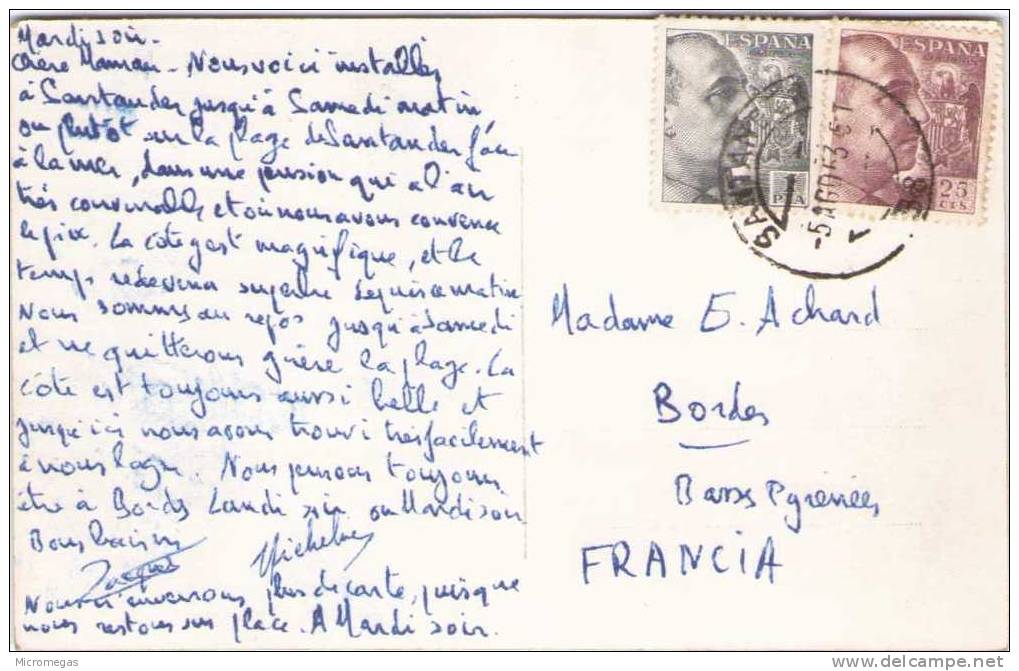 Mardi soir -
Chère Maman - Nous voici installés
à Santander jusqu'à Samedi matin,
ou plutôt sur la plage de Santander face
à la mer, dans une pension qui a l'air
très convenable et où nous avons convenu
le prix. La côte est magnifique, et le
temps redevenu superbe depuis ce matin
Nous sommes au repos jusqu'à Samedi
et ne quitterons guère la plage. La
côte est toujours aussi belle et
jusqu'ici nous avons trouvé très facilement
à nous loger. Nous pensons toujours
être à Bordes Lundi soir ou Mardi soir
Bons baisers
Jacques Micheline
Nous n'enverrons plus de carte, puisque
nous restons sur place. A Mardi soir.
ESPAÑA
1
PTA
ESPAÑA
CORREOS
25
CTS
SANTANDER
-5 AGO
Madame E. Achard
Bordes
Basses Pyrénées
FRANCIA
Micromegas
www.delcampe.net